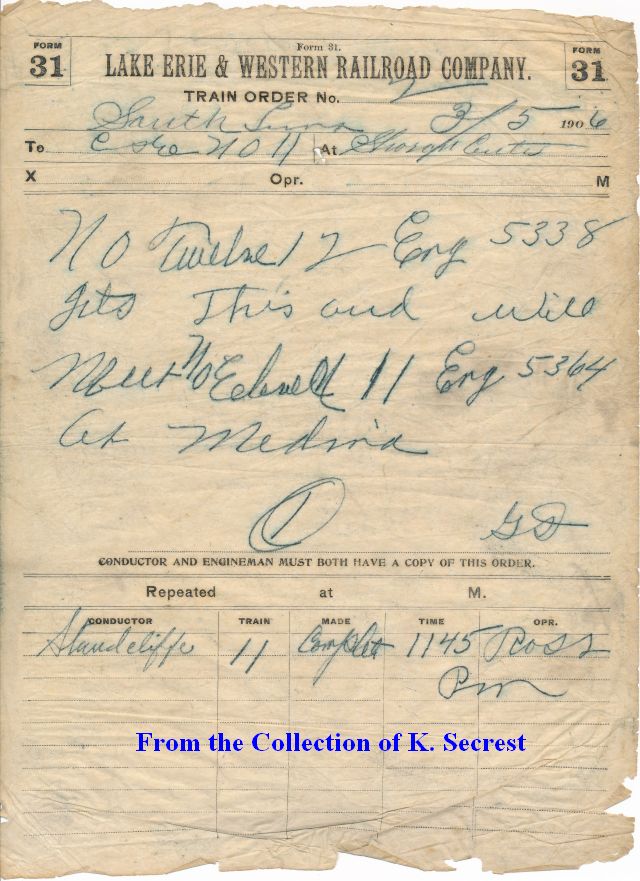 FORM 31 Form 31. FORM 31
LAKE ERIE & WESTERN RAILROAD COMPANY.
TRAIN ORDER No. 2
South Lima 3/5 1906
To C & E No 11 At
X Opr. M
No Twelve 12 Eng 5338
gets This and will
Meet No Eleven 11 Eng 5364
At Medina
GD
CONDUCTOR AND ENGINEMAN MUST BOTH HAVE A COPY OF THIS ORDER.
Repeated at M.
CONDUCTOR TRAIN MADE TIME OPR.
Standcliffe 11 Complet 1145 Ross
Pm
From the Collection of K. Secrest